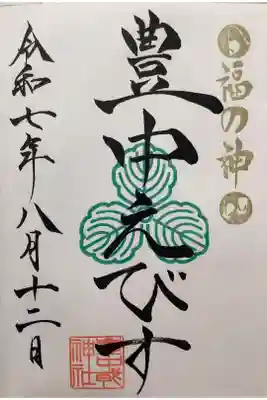 福の神
豊中えびす
令和七年八月十二日